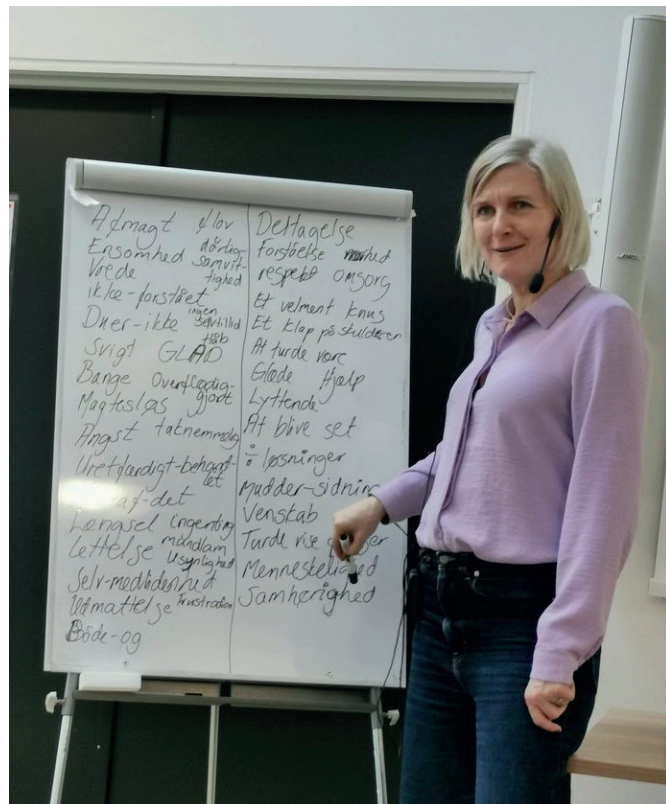 Afmagt flov
Ensomhed dårlig-
Vrede samvit-
tighed
ikke-forstået
Duer-ikke ingen selvtillid
Svigt GLAD
Bange Overflødig-
Magtesløs gjort
Angst taknemmelig
Uretfærdigt-behand-
let
af-det
Længsel ingenting
Lettelse mundlam
usynlighed
Selv-medlidenhed
Udmattelse Frustration
Både-og
Deltagelse
Forståelse
respekt omsorg
Et velment knus
Et klap på skulderen
At turde være
Glæde Hjælp
Lyttende
At blive set
÷ løsninger
Mudder-sidning
Venskab
Turde vise
Menneskelighed
Samhørighed